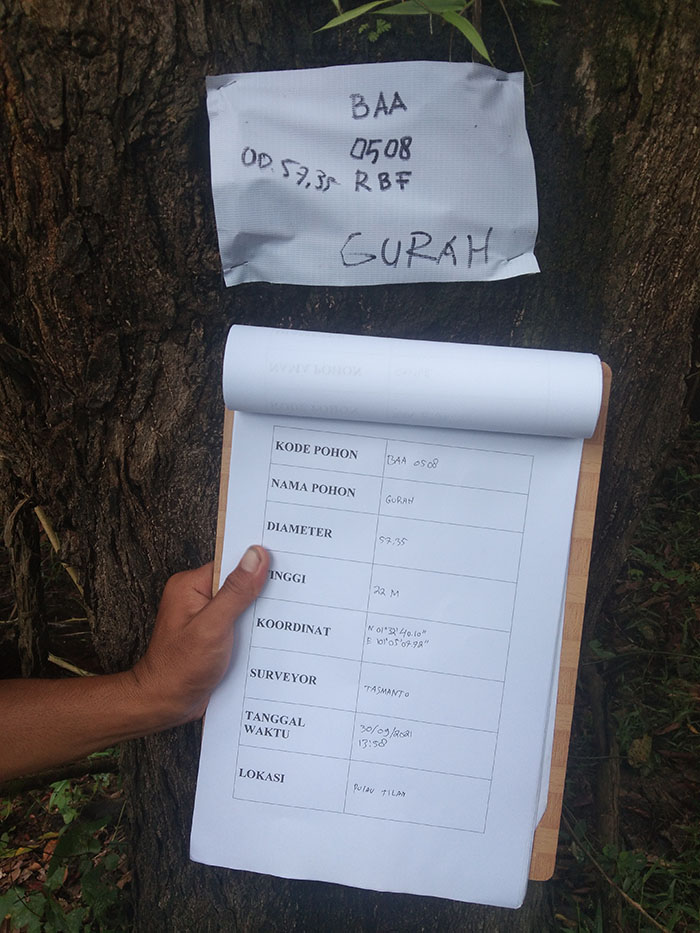 BAA
0508
OD. 57,35 RBF
GURAH
NAMA POHON
KODE POHON BAA 0508
NAMA POHON GURAH
DIAMETER 57.35
INGGI 22 M
KOORDINAT N 01°32'40.10"
E 101°05'07.92"
SURVEYOR TASMANTO
TANGGAL 30/09/2021
WAKTU 13:58
LOKASI PULAU TILAN